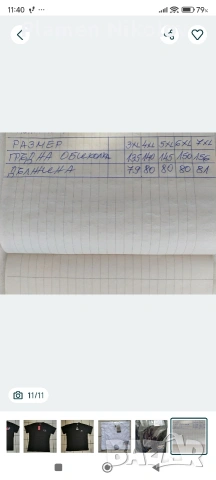 11:40
79%
РАЗМЕР 3XL 4XL 5XL 6XL 7XL
ГРЪДНА ОБИКОЛКА 135 140 145 150 156
ДЪЛЖИНА 79 80 80 80 81
11/11
BAZAR